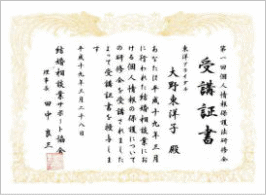 第一回個人情報保護法研修会
受講証書
東洋ブライダル
大野東洋子 殿
あなたは平成十九年三月
に行われた結婚相談業にお
ける個人情報の保護について
の研修会を受講されました
よって受講証書を授与しま
す
平成十九年三月二十八日
結婚相談業サポート協会
理事長 田中良三